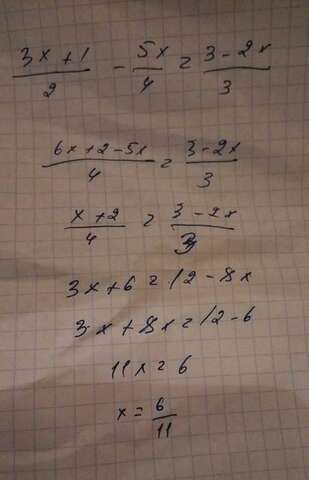 (3x + 1)/2 - 5x/4 = (3 - 2x)/3
(6x + 2 - 5x)/4 = (3 - 2x)/3
(x + 2)/4 = (3 - 2x)/3
3x + 6 = 12 - 8x
3x + 8x = 12 - 6
11x = 6
x = 6/11